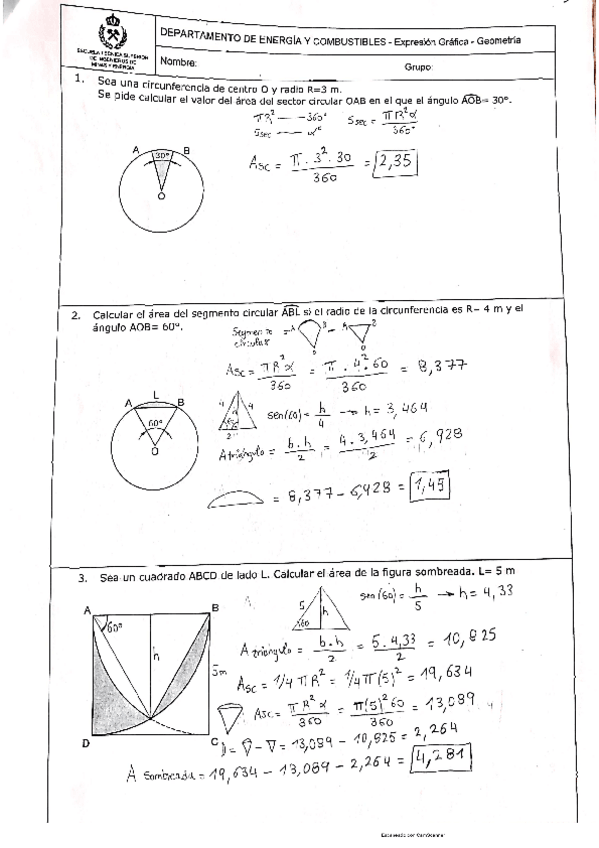 ESCUELA TÉCNICA SUPERIOR
DE INGENIEROS DE
MINAS Y ENERGÍA
DEPARTAMENTO DE ENERGÍA Y COMBUSTIBLES - Expresión Gráfica - Geometría
Nombre: Grupo:
1. Sea una circunferencia de centro O y radio R=3 m.
Se pide calcular el valor del área del sector circular OAB en el que el ángulo AOB= 30º.
πR² — 360º
Ssec — αº
Ssec = πR²α / 360º
Asc = π · 3² · 30 / 360 = 2,35
A 30º B
O
2. Calcular el área del segmento circular ABL si el radio de la circunferencia es R= 4 m y el
ángulo AOB= 60º.
Segmento
circular
Asc = πR²α / 360 = π · 4² · 60 / 360 = 8,377
sen(60) = h / 4 → h = 3,464
A triángulo = b·h / 2 = 4 · 3,464 / 2 = 6,928
= 8,377 - 6,928 = 1,45
A L B
60º
O
3. Sea un cuadrado ABCD de lado L. Calcular el área de la figura sombreada. L= 5 m
sen(60) = h / 5 → h = 4,33
5 h
60
A triángulo = b·h / 2 = 5 · 4,33 / 2 = 10,825
Asc = 1/4 πR² = 1/4 π(5)² = 19,634
Asc = πR²α / 360 = π(5)² 60 / 360 = 13,089
= 13,089 - 10,825 = 2,264
A sombreada = 19,634 - 13,089 - 2,264 = 4,281
A B
60º
h
5m
D C
Escaneado con CamScanner